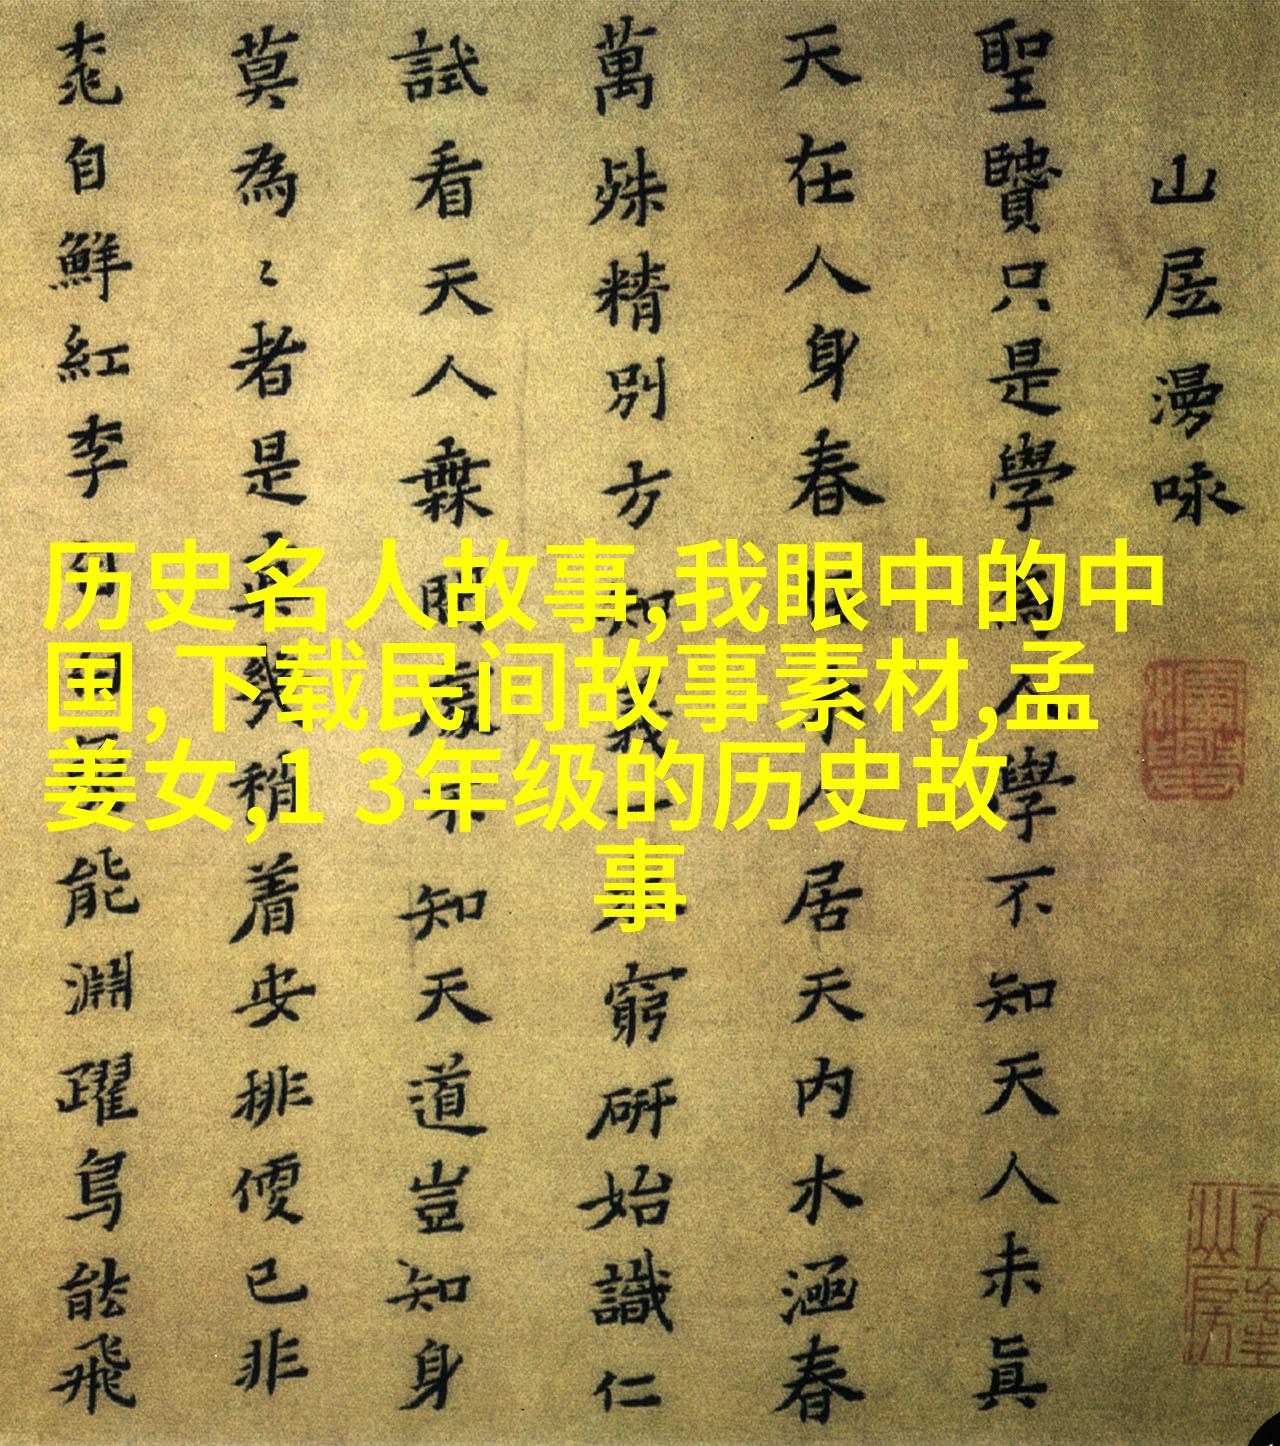 历史名人故事,我眼中的中
国,下载民间故事素材,孟
姜女,1 3年级的历史故
事
山居漫咏
聖賢只是學為人學不知天人未真
天在人身春人居天内木涵春
萬殊精別方知義一窮研始識仁
試看天人無間處不知天道豈知身
莫為〻者是真幾稍着安排便已非
桃自鮮紅李自能淵躍鳥能飛